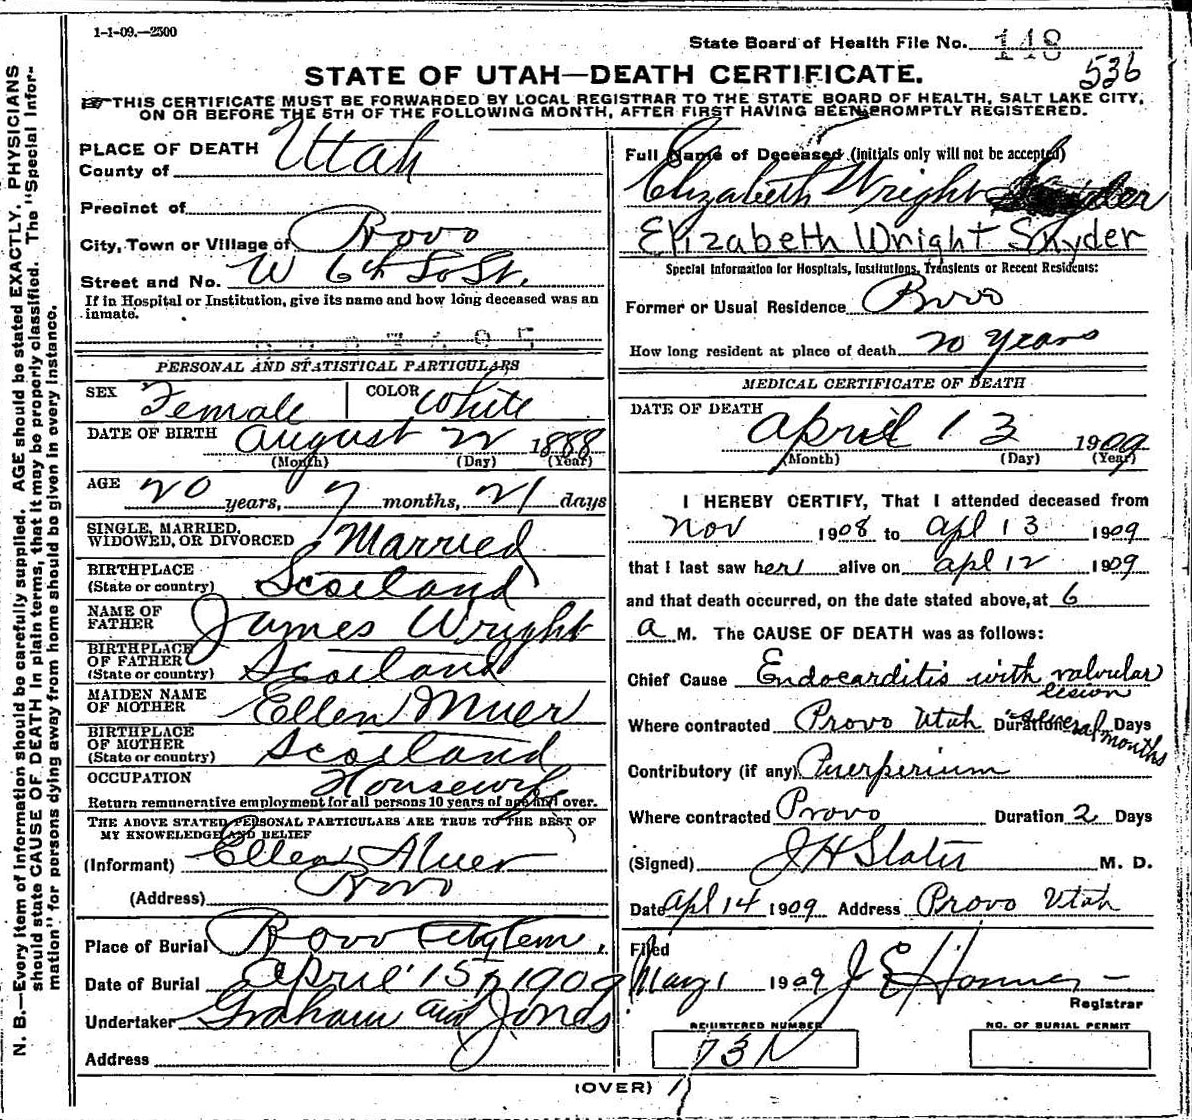 1-1-09.—2500
State Board of Health File No. 148
536
STATE OF UTAH—DEATH CERTIFICATE.
THIS CERTIFICATE MUST BE FORWARDED BY LOCAL REGISTRAR TO THE STATE BOARD OF HEALTH, SALT LAKE CITY,
ON OR BEFORE THE 5TH OF THE FOLLOWING MONTH, AFTER FIRST HAVING BEEN PROMPTLY REGISTERED.
N. B.—Every item of information should be carefully supplied. AGE should be stated EXACTLY. PHYSICIANS
should state CAUSE OF DEATH in plain terms, that it may be properly classified. The "Special Infor-
mation" for persons dying away from home should be given in every instance.
PLACE OF DEATH
County of Utah
Precinct of
City, Town or Village of Provo
Street and No. W 6th So St.
If in Hospital or Institution, give its name and how long deceased was an
inmate.
PERSONAL AND STATISTICAL PARTICULARS
SEX Female COLOR White
DATE OF BIRTH August 22 1888
(Month) (Day) (Year)
AGE 20 years, 7 months, 21 days
SINGLE, MARRIED,
WIDOWED, OR DIVORCED Married
BIRTHPLACE
(State or country) Scotland
NAME OF
FATHER James Wright
BIRTHPLACE
OF FATHER
(State or country) Scotland
MAIDEN NAME
OF MOTHER Ellen Muer
BIRTHPLACE
OF MOTHER
(State or country) Scotland
OCCUPATION Housewife
Return remunerative employment for all persons 10 years of age and over.
THE ABOVE STATED PERSONAL PARTICULARS ARE TRUE TO THE BEST OF
MY KNOWELEDGE AND BELIEF
(Informant) Ellen Muer
(Address) Provo
Place of Burial Provo City Cem.
Date of Burial April 15th 1909
Undertaker Graham and Jones
Address
Full Name of Deceased (initials only will not be accepted)
Elizabeth Wright Snyder
Elizabeth Wright Snyder
Special Information for Hospitals, Institutions, Transients or Recent Residents:
Former or Usual Residence Provo
How long resident at place of death 20 years
MEDICAL CERTIFICATE OF DEATH
DATE OF DEATH April 13 1909
(Month) (Day) (Year)
I HEREBY CERTIFY, That I attended deceased from
Nov 1908 to Apl 13 1909
that I last saw her alive on Apl 12 1909
and that death occurred, on the date stated above, at 6
a M. The CAUSE OF DEATH was as follows:
Chief Cause Endocarditis with valvular
lesion
Where contracted Provo Utah Duration several months Days
Contributory (if any) Puerperium
Where contracted Provo Duration 2 Days
(Signed) J H Slater M. D.
Date Apl 14 1909 Address Provo Utah
Filed
May 1 1909 J E
Registrar
REGISTERED NUMBER NO. OF BURIAL PERMIT
(OVER)